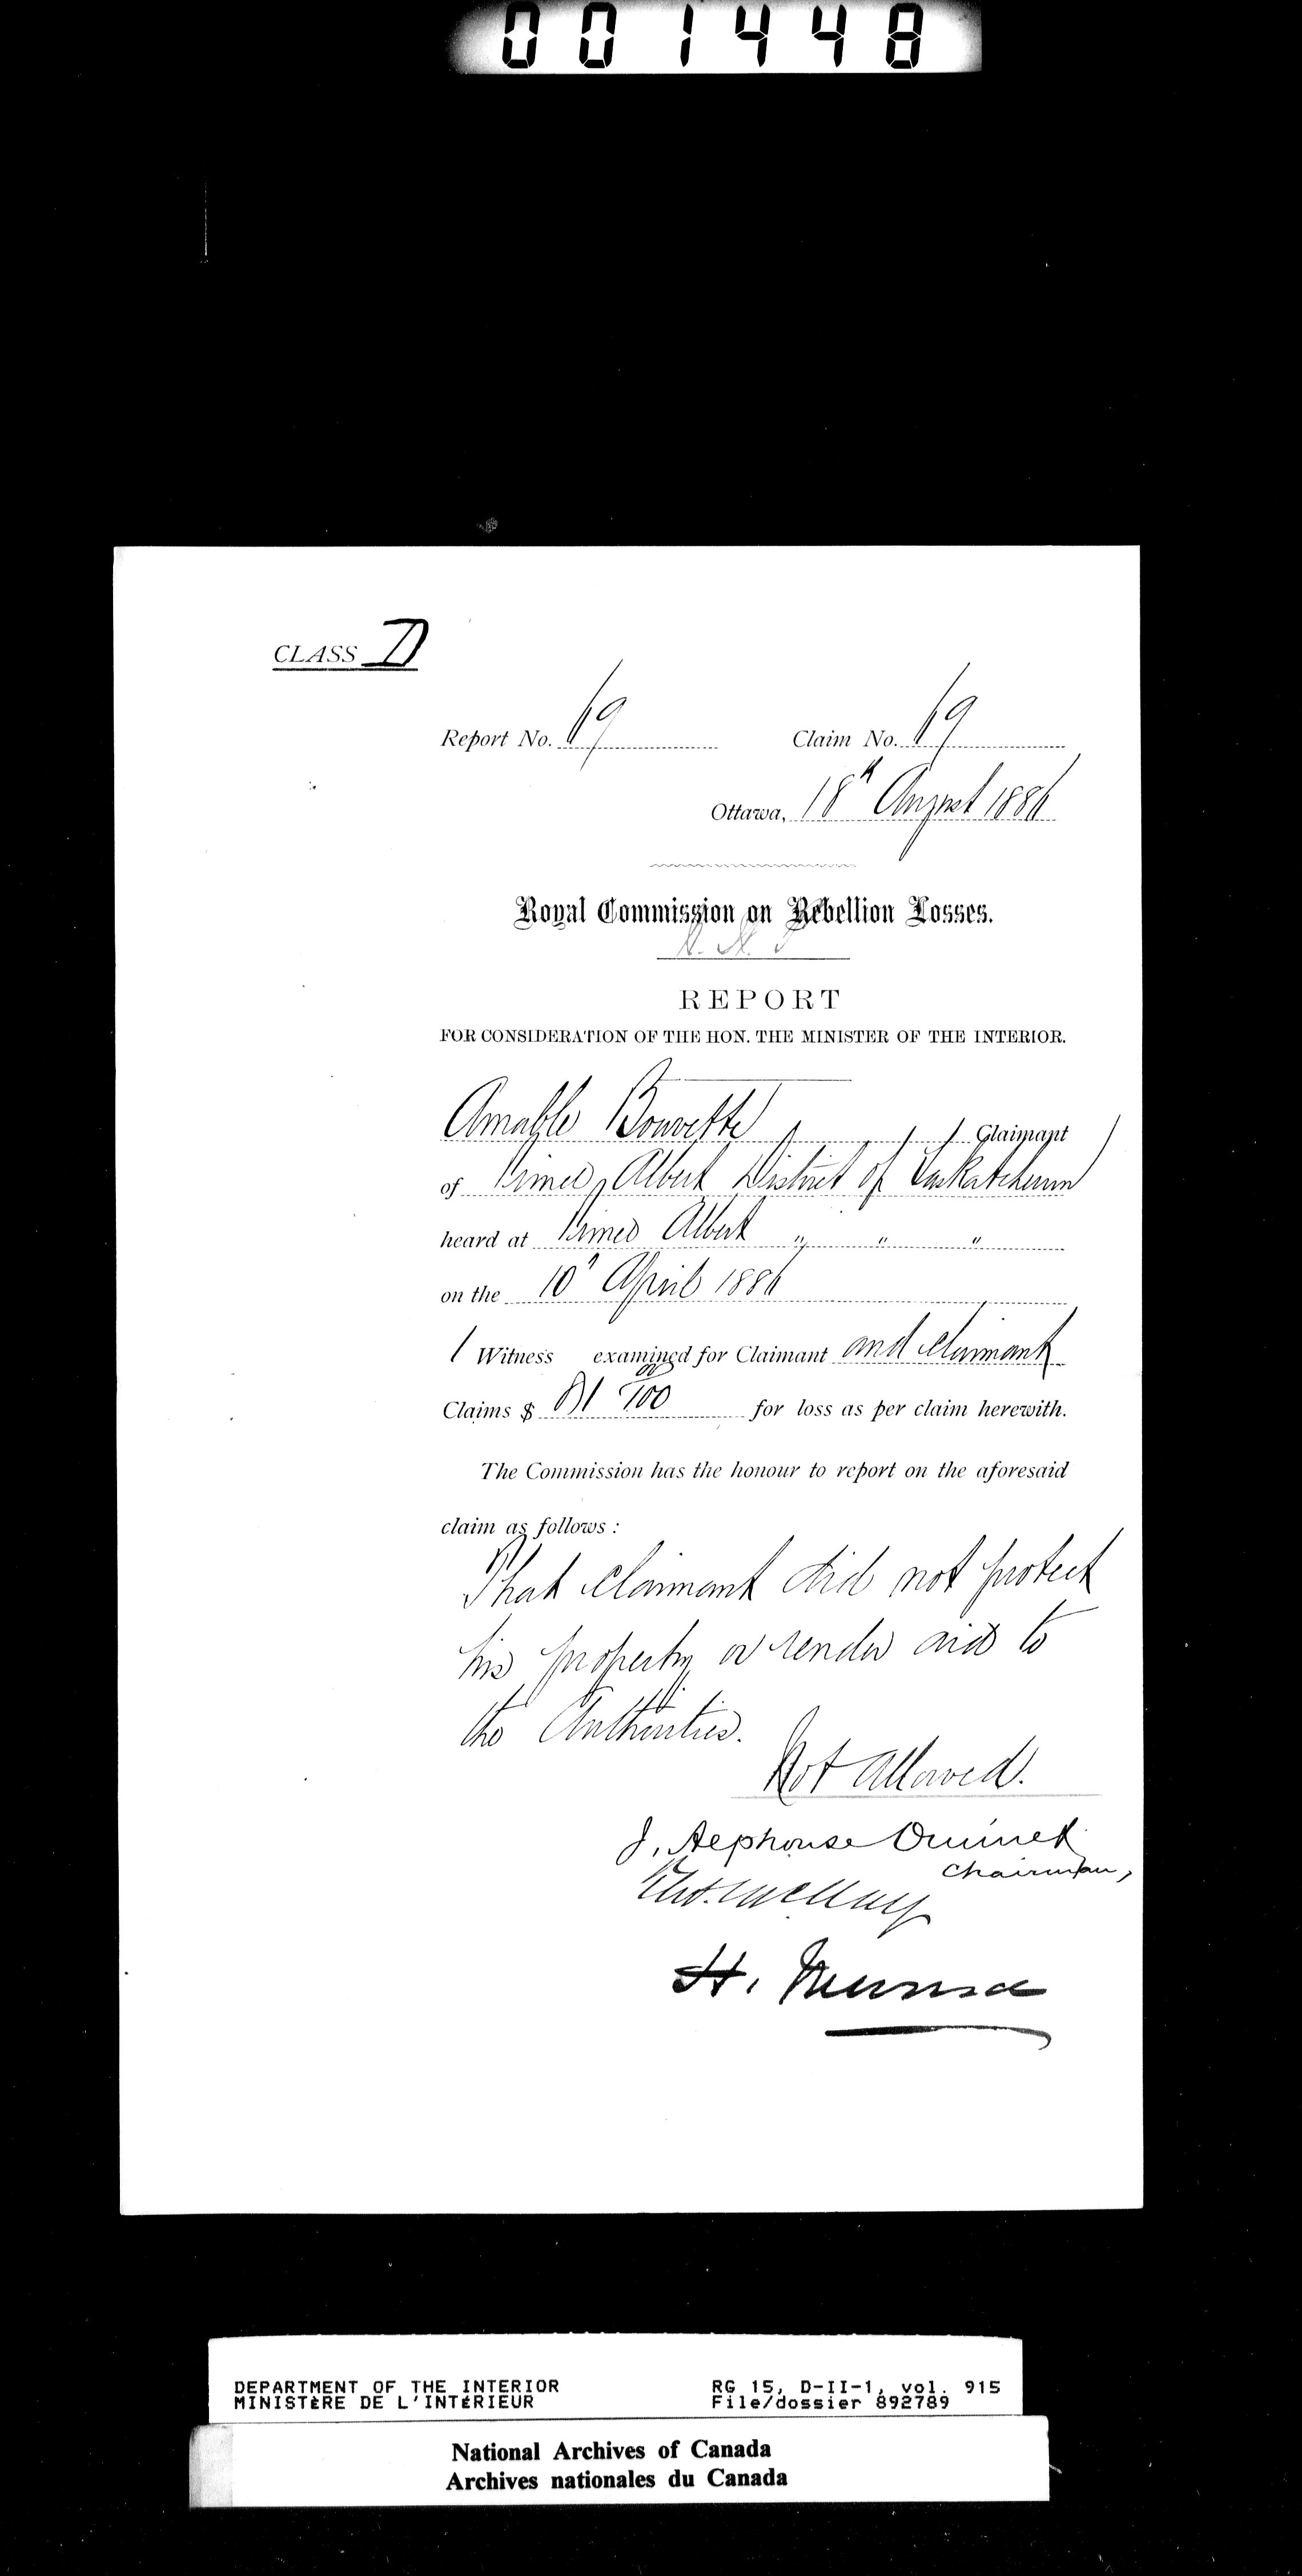 001448
CLASS D
Report No. 69 Claim No. 69
Ottawa, 18th August 1886
Royal Commission on Rebellion Losses.
REPORT
FOR CONSIDERATION OF THE HON. THE MINISTER OF THE INTERIOR.
Amable Bouvette Claimant
of Prince Albert District of Saskatchewan
heard at Prince Albert " " "
on the 10th April 1886
1 Witness examined for Claimant and claimant
Claims $ 00/100 for loss as per claim herewith.
The Commission has the honour to report on the aforesaid
claim as follows :
That claimant did not protect
his property or render aid to
the Authorities.
Not allowed.
J. Alphonse Ouimet
Chairman,
H. Muma
DEPARTMENT OF THE INTERIOR RG 15, D-II-1, vol. 915
MINISTÈRE DE L'INTÉRIEUR File/dossier 892789
National Archives of Canada
Archives nationales du Canada